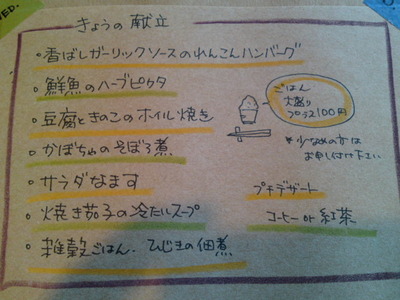 WED.
きょうの献立
・香ばしガーリックソースのれんこんハンバーグ
・鮮魚のハーブピカタ
・豆腐ときのこのホイル焼き
・かぼちゃのそぼろ煮
・サラダなます
・焼き茄子の冷たいスープ
・雑穀ごはん、ひじきの佃煮
ごはん
大盛り
プラス100円
*少なめの方は
お申し付け下さい
プチデザート
コーヒー or 紅茶